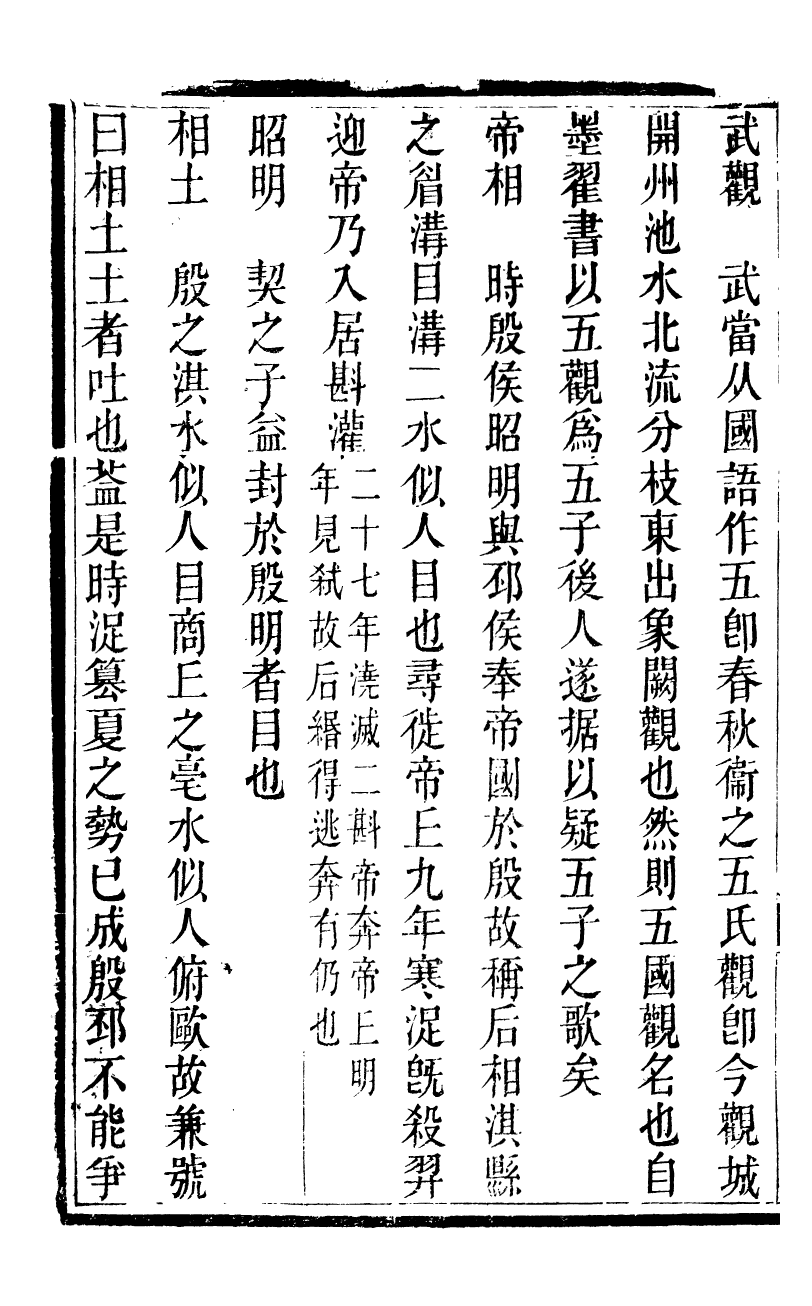 武觀　武當从國語作五卽春秋衞之五氏觀卽今觀城
開州池水北流分枝東出象闕觀也然則五國觀名也自
墨翟書以五觀爲五子後人遂据以疑五子之歌矣
帝相　時殷侯昭明與邳侯奉帝國於殷故稱后相淇縣
之眉溝目溝二水似人目也尋徙帝丘九年寒浞旣殺羿
迎帝乃入居斟灌二十七年澆滅二斟帝奔帝丘明
年見弒故后緡得逃奔有仍也
昭明　契之子益封於殷明者目也
相土　殷之淇水似人目商丘之亳水似人俯歐故兼號
曰相土土者吐也葢是時浞篡夏之勢已成殷邳不能爭